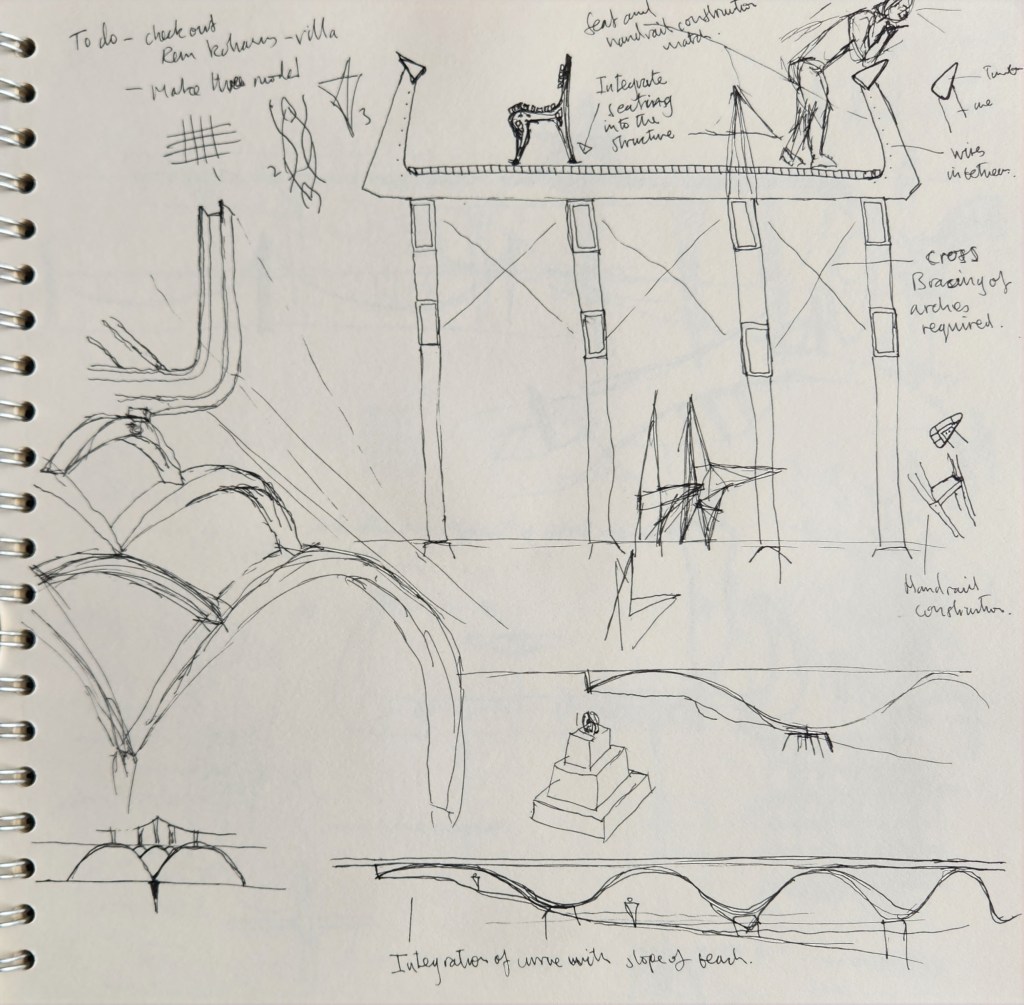 To do - check out
Rem Koharus - villa
- Make three model
1
2
3
Seat and
handrail construction
match.
Integrate
seating
into the
structure
wires
in between.
cross
Bracing of
arches
required.
Handrail
construction.
Integration of curve with slope of beach.